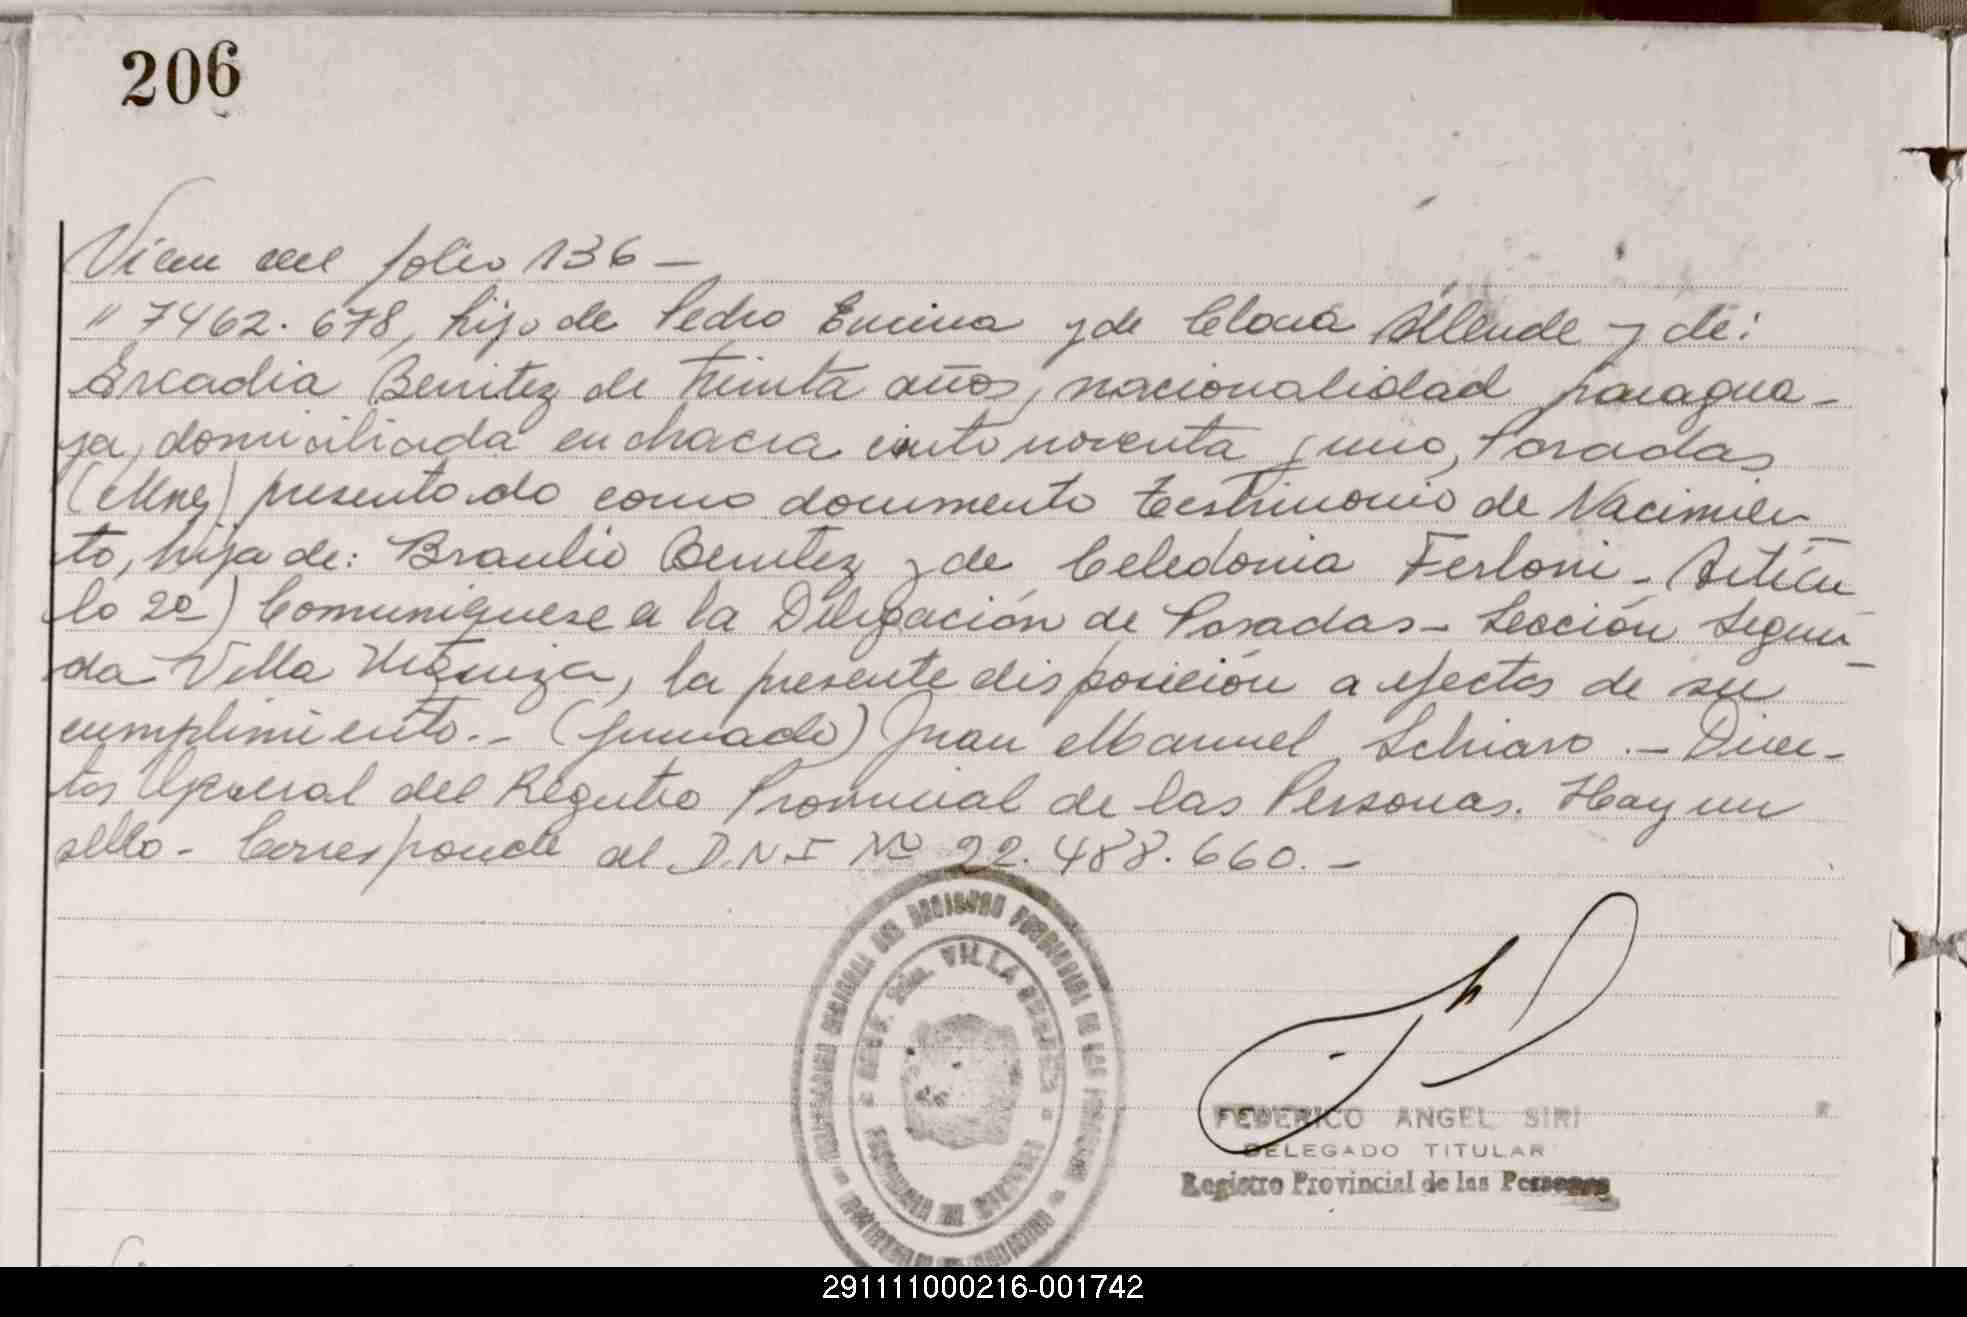 206
Viene del folio 136 —
" 7462.678, hijo de Pedro Encina y de Clara Allende y de:
Arcadia Benitez de treinta años, nacionalidad paragua-
ya, domiciliada en chacra ciento noventa y uno, Posadas
(Mnes) presentando como documento testimonio de Nacimien-
to, hija de: Braulio Benitez y de Celedonia Ferloni - Artícu-
lo 2º) Comuniquese a la Delegación de Posadas - Sección Segun-
da Villa Urquiza, la presente disposición a efectos de su
cumplimiento.- (firmado) Juan Manuel Schiavo .- Direc-
tor General del Registro Provincial de las Personas. Hay un
sello - Corresponde al D.N.I Nº 22.488.660. -
VILLA
FEDERICO ANGEL SIRI
DELEGADO TITULAR
Registro Provincial de las Personas
291111000216-001742